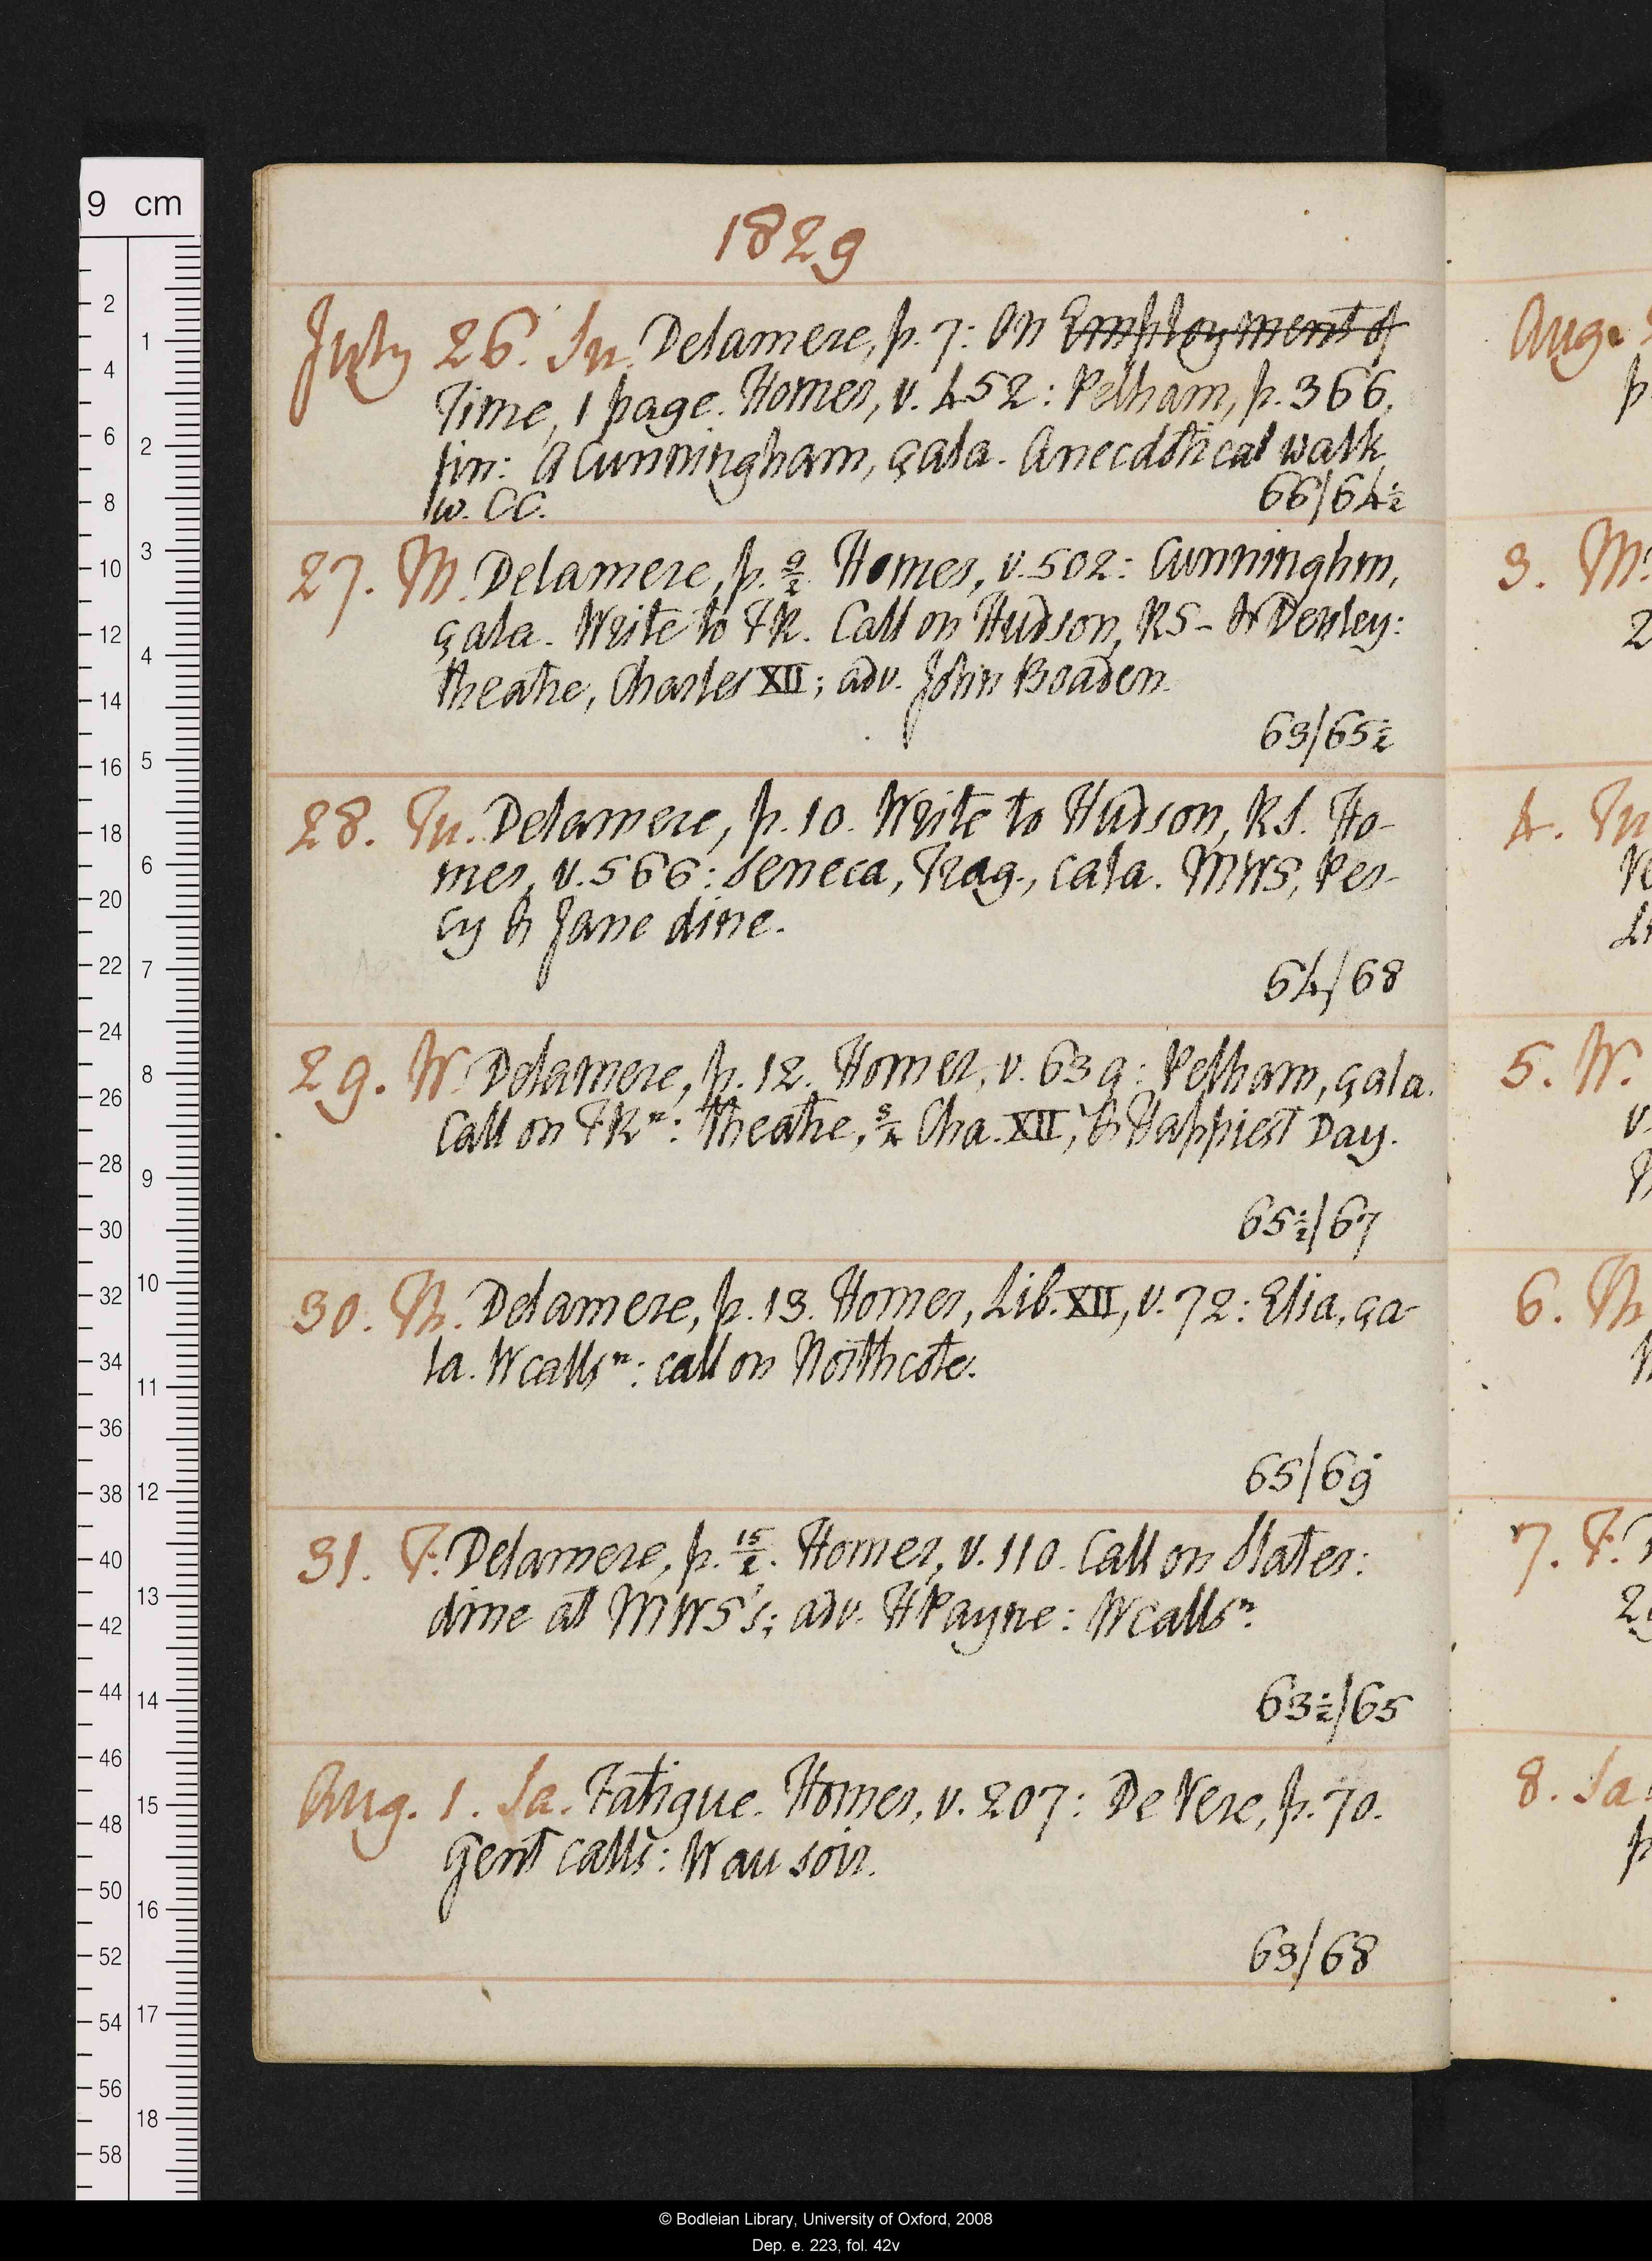 9 cm
1829
July 26. Su. Delamere, p. 7: On Employment of
Time, 1 page. Homer, v. 452: Pelham, p. 366,
fin: A Cunningham, çala. Anecdotical walk
w. CC.
66/64½
27. M. Delamere, p. 9/2. Homer, v. 502: Cunninghm,
çala. Write to FK. Call on Hudson, RS - & Denley:
theatre, Charles XII; adv. John Boaden.
63/65½
28. Tu. Delamere, p. 10. Write to Hudson, RS. Ho-
mer, v. 566: Seneca, Trag., çala. MWS, Per-
cy & Jane dine.
64/68
29. W. Delamere, p. 12. Homer, v. 639: Pelham, çala.
Call on FKn: theatre, 2/3 Cha. XII, & Happiest Day.
65½/67
30. Th. Delamere, p. 13. Homer, Lib. XII, v. 72: Elia, ça-
la. W callsn: call on Northcote.
65/69
31. F. Delamere, p. 15/2. Homer, v. 110. Call on Slater:
dine at MWS's; adv. HPayne: W callsn.
63½/65
Aug. 1. Sa. Fatigue. Homer, v. 207: De Vere, p. 70.
Gent calls: W au soir.
63/68
Aug.
3. M.
4. Tu
5. W.
6. Th
7. F.
8. Sa
© Bodleian Library, University of Oxford, 2008
Dep. e. 223, fol. 42v